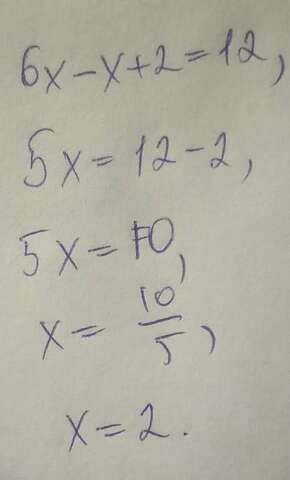 6x-x+2=12,
5x=12-2,
5x=10,
x=10/5,
x=2.